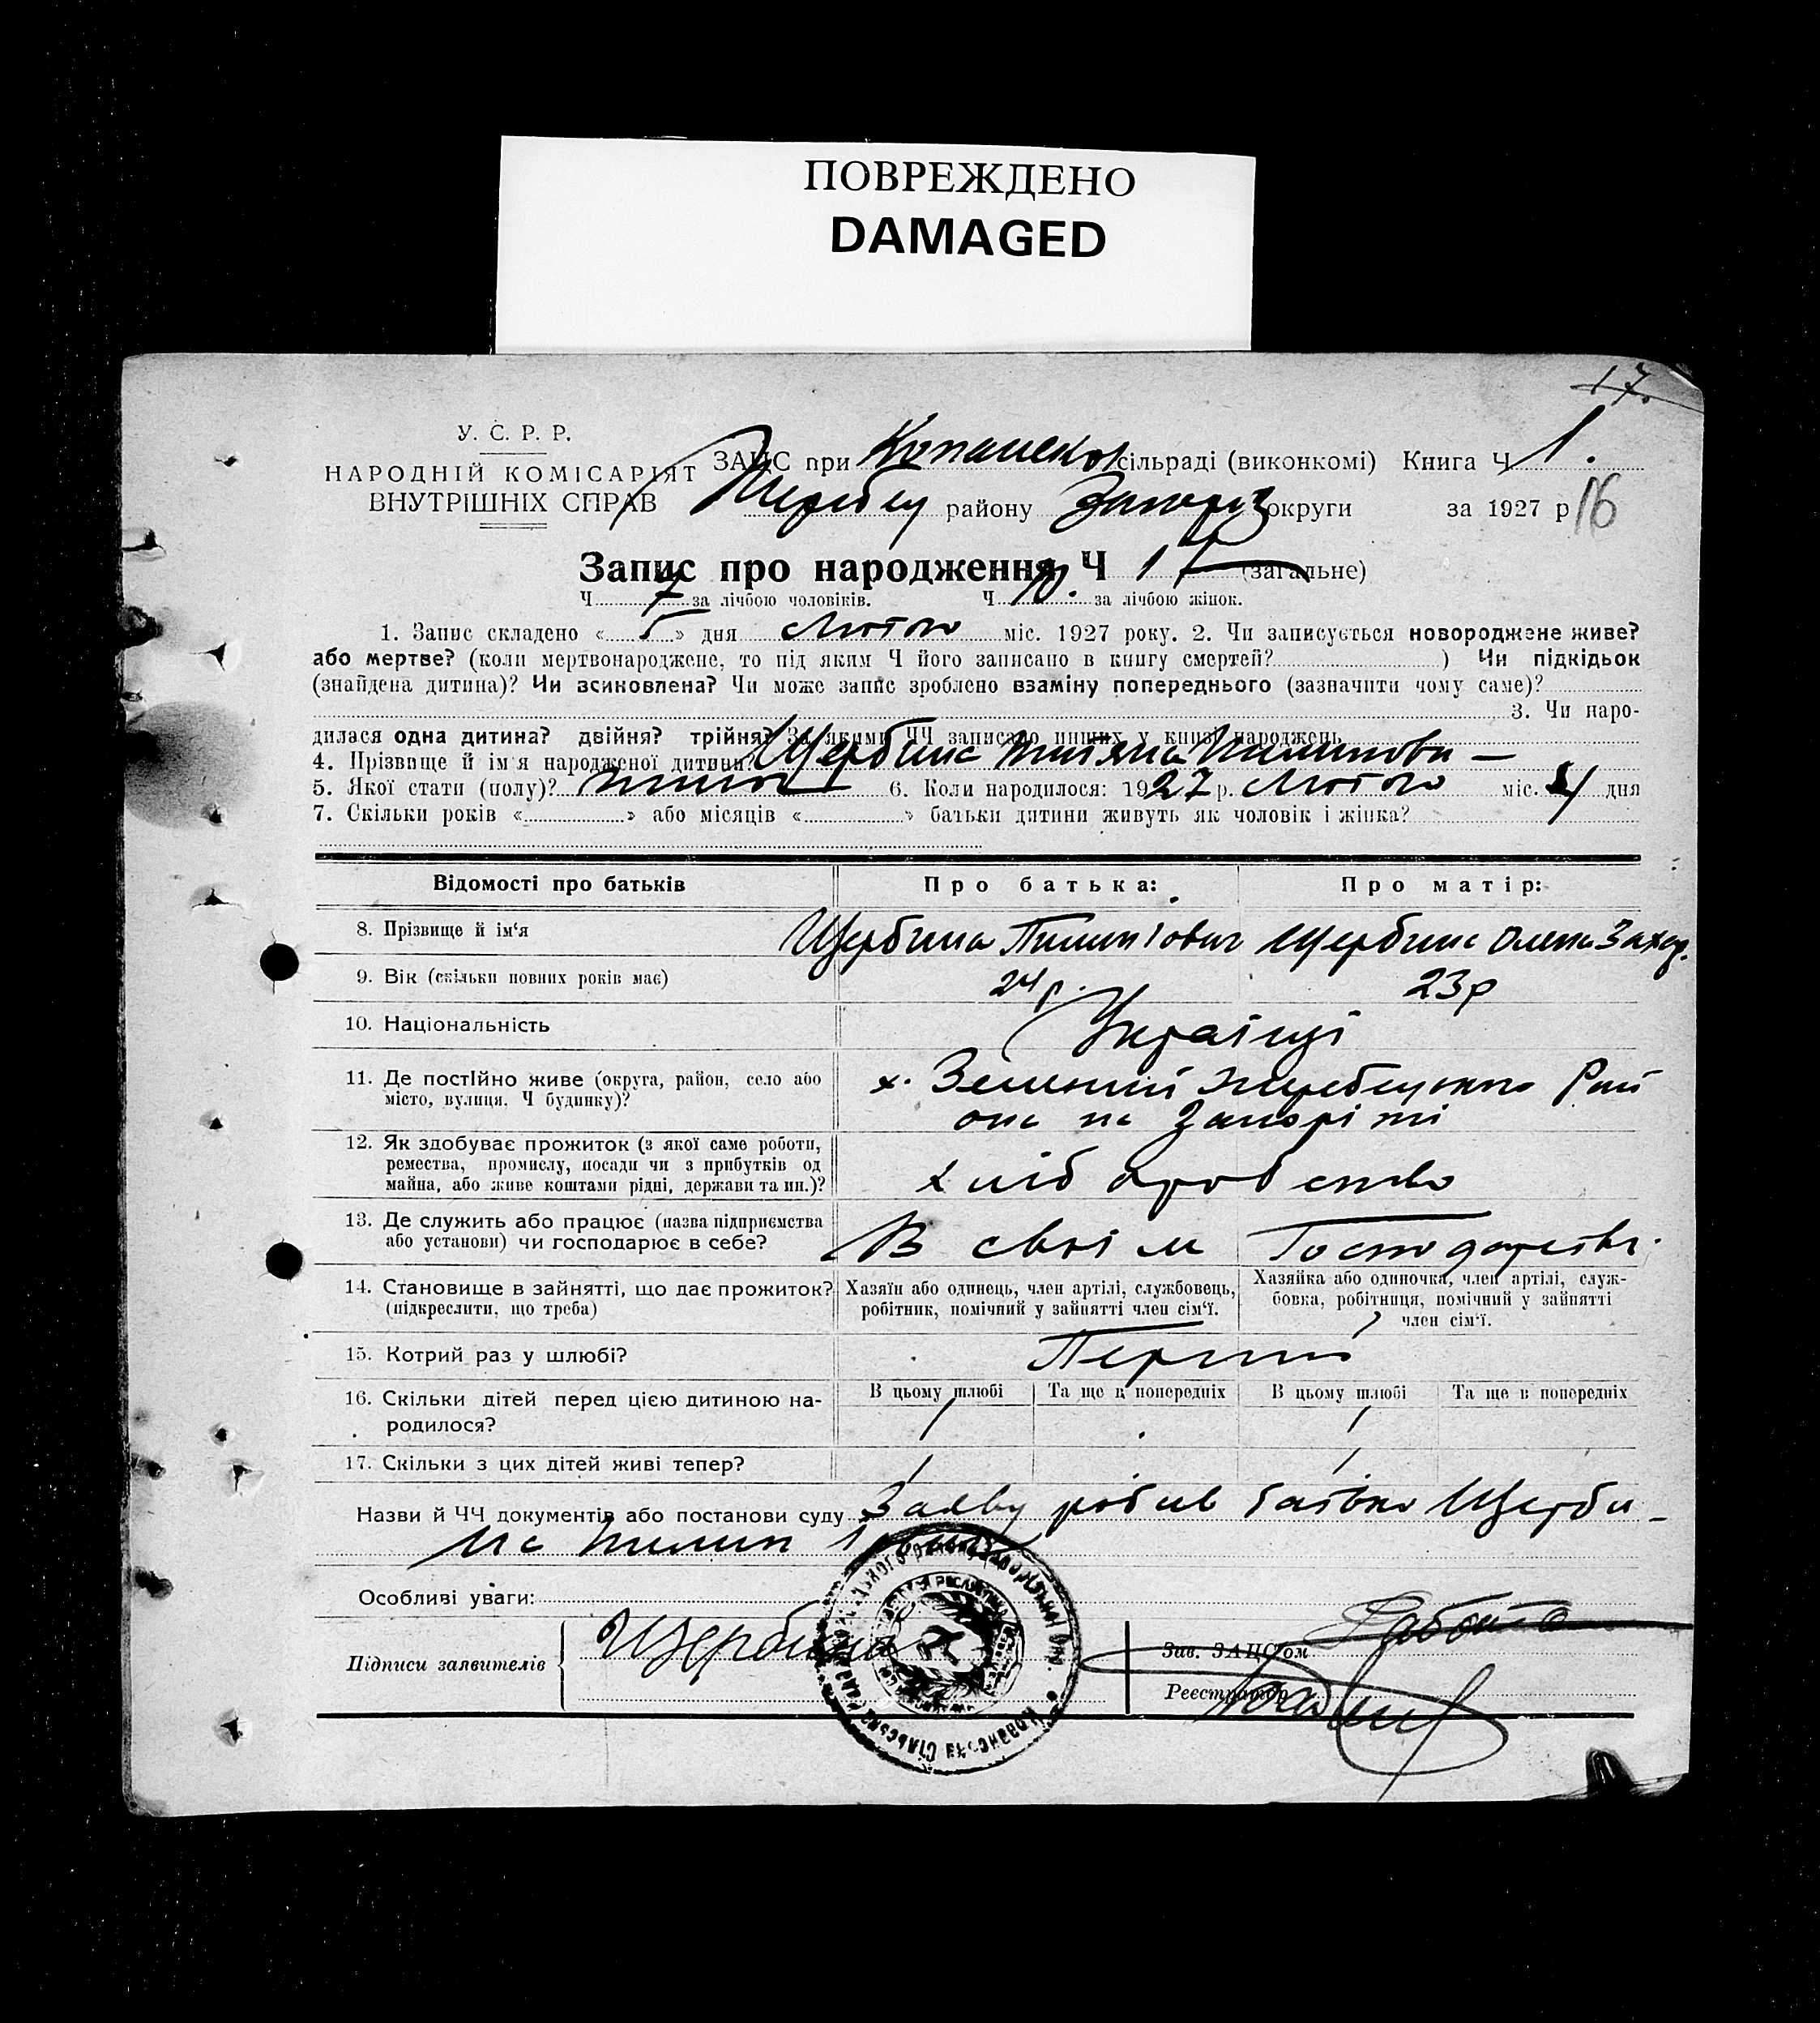 ПОВРЕЖДЕНО
DAMAGED
17.
У. С. Р. Р.
НАРОДНІЙ КОМІСАРІЯТ
ВНУТРІШНІХ СПРАВ
ЗАЦС при сільраді (виконкомі) Книга Ч 1.
Жеребец району Запоріз округи за 1927 р 16
Запис про народження Ч 17 (загальне)
Ч 7 за лічбою чоловіків. Ч 10. за лічбою жінок.
1. Запис складено «5» дня Лютого міс. 1927 року. 2. Чи записується новороджене живе?
або мертве? (коли мертвонароджене, то під яким Ч його записано в книгу смертей? ) Чи підкідьок
(знайдена дитина)? Чи всиновлена? Чи може запис зроблено взаміну попереднього (зазначити чому саме)?
3. Чи наро-
дилася одна дитина? двійня? трійня? За якими ЧЧ записано инших у книзі народжень
4. Прізвище й ім'я народженої дитини? Щербина
5. Якої стати (полу)? 6. Коли народилося: 1927 р. Лютого міс. 4 дня
7. Скільки років « » або місяців « » батьки дитини живуть як чоловік і жінка?
Відомості про батьків
Про батька:
Про матір:
8. Прізвище й ім'я
Щербина Пилип Іович
Щербина Олена Захар.
9. Вік (скільки повних років має)
24 р.
23 р
10. Національність
Українці
11. Де постійно живе (округа, район, село або
місто, вулиця, Ч будинку)?
х. Зелений Жеребецького Рай
она на Запоріжжі
12. Як здобуває прожиток (з якої саме роботи,
ремества, промислу, посади чи з прибутків од
майна, або живе коштами рідні, держави та ин.)?
хліборобство
13. Де служить або працює (назва підприємства
або установи) чи господарює в себе?
В своїм Господарстві.
14. Становище в зайнятті, що дає прожиток?
(підкреслити, що треба)
Хазяїн або одинець, член артілі, службовець,
робітник, помічний у зайнятті член сім'ї.
Хазяйка або одиночка, член артілі, служ-
бовка, робітниця, помічний у зайнятті
член сім'ї.
15. Котрий раз у шлюбі?
Перший
16. Скільки дітей перед цією дитиною на-
родилося?
В цьому шлюбі
Та ще в попередніх
В цьому шлюбі
Та ще в попередніх
1
1
17. Скільки з цих дітей живі тепер?
1
1
Назви й ЧЧ документів або постанови суду Заяву робив батько Щерби-
на Пилип
Особливі уваги:
Підписи заявителів
Щербина
Зав. ЗАЦС'ом
Реєстратор